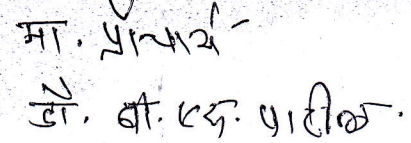 मा. प्राचार्य
डॉ. बी. एस. पाटील.